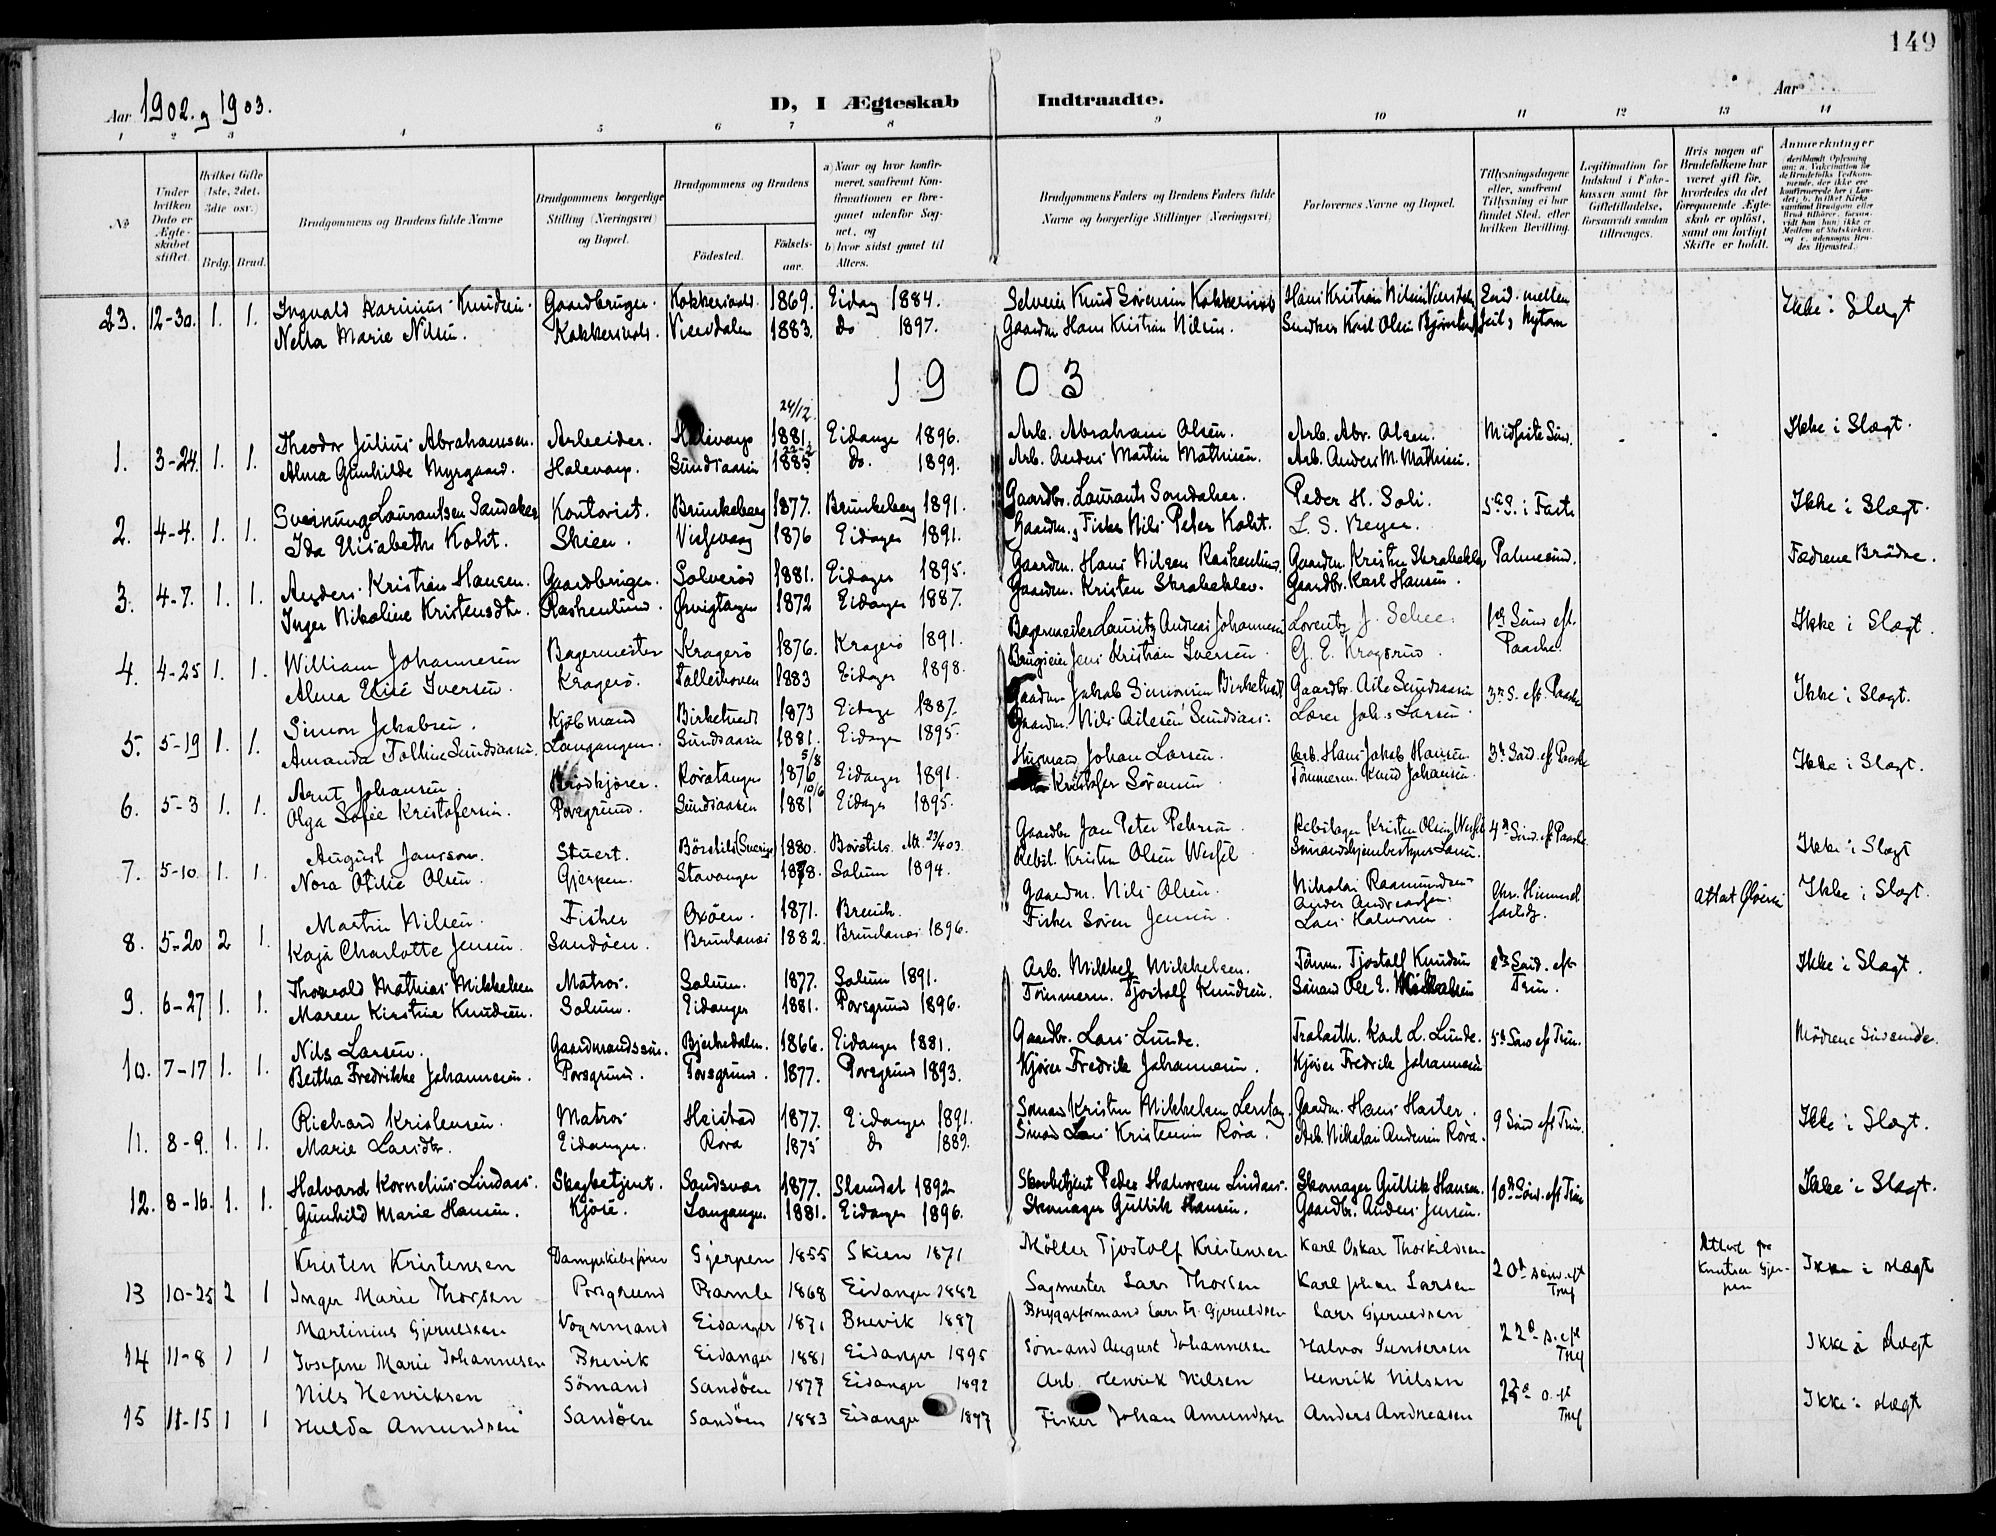 149
Aar 1902. og 1903.
D, I Ægteskab Indtraadte.
Aar
1 2 3 4 5 6 7 8 9 10 11 12 13 14
No
Under hvilken Dato er Ægteskabet stiftet.
Hvilket Gifte (1ste, 2det, 3dte osv.)
Brdg. Brud.
Brudgommens og Brudens fulde Navne
Brudgommens borgerlige Stilling (Næringsvei) og Bopæl.
Brudgommens og Brudens
Födested. Födselsaar.
a) Naar og hvor konfirmeret, saafremt Konfirmationen er foregaaet udenfor Sognet, og
b) hvor sidst gaaet til Alters.
Brudgommens Faders og Brudens Faders fulde Navne og borgerlige Stillinger (Næringsvei)
Forlovernes Navne og Bopæl.
Tillysningsdagene eller, saafremt Tillysning ei har fundet Sted, efter hvilken Bevilling.
Legitimation for Indskud i Enkekassen samt for Giftetilladelse, forsaavidt saadan tiltrænges.
Hvis nogen af Brudefolkene har været gift för, hvorledes da det foregaaende Ægteskab er oplöst, samt om lovligt Skifte er holdt.
Anmerkninger
23. 12-30. 1. 1. Ingvald Karinius Knudsen. Gaardbruger. Kokkersvold. 1869. Eidang 1884. Selveier Knud Sörensen Kokkersvold Hans Kristian Nilsen Ikke i Slægt
Nella Marie Nilsen. Kokkersvold. Viersdalen 1883. do 1897. Gaardm. Hans Kristian Nilsen. Karl Olsen mellem Jul & Nytaar
1903
24/12
Theodor Julius Abrahamsen. Arbeider. 1881. Eidanger 1896. Arb. Abraham Olsen. Arb. Abr. Olsen. Midfaste Sönd. Ikke i Slægt.
1. 3-24. 1. 1. Alma Gunhilde Myrgaard. Sundsaasen 1885 do. 1899. Arb. Anders Martin Mathisen. Arb. Anders M. Mathisen.
Sveinung Laurantsen Sandaker Kontorist. Brunkeberg 1877. Brunkeberg 1891. Gaardbr. Laurants Sandaker. Peder H. Soli. 5te S. i Faste Ikke i Slægt.
2. 4-4. 1. 1. Ida Elisabeth Kokt. Skien. 1876 Eidanger 1891. Gaardm. & Fisker Nils Peter Kokt. L. S. Beyer.
Anders Kristian Hansen. Gaardbruger. Solveröd 1881. Eidanger 1895. Gaardm. Hans Nilsen Gaardm. Kristen Skrabeklev Palmesönd. Fædrene Brödre.
3. 4-7. 1. 1. Inger Nikoline Kristensdtr. 1872 Eidanger 1887. Gaardm. Kristen Skrabeklev. Gaardbr. Karl Hansen.
William Johannesen Bagermester Kragerö 1876. Kragerö 1891. Bagermester Lauritz Andreas Johannesen Lorentz J. 1ste Sönd. eft. Paaske Ikke i Slægt.
4. 4-25 1. 1. Alma Elise Iversen. Kragerö. 1883 Eidanger 1898. Jens Kristian Iversen G. E. Kragsrud.
Simon Jakobsen. Kjöbmand Birketvedt 1873 Eidanger 1887. Gaardm. Jakob Simonsen Birketvedt Gaardbr. Sundsaasen 3die S. eft. Paaske Ikke i Slægt.
5. 5-19 1. 1. Amanda Tolline Sundsaasen. Langangen. Sundsaasen 1881. Eidanger 1895. Gaardm. Nils Ailesen Sundsaas. Lærer Johs. Larsen.
5/8
Arnt Johansen Brödkjörer. Rövatangen 1876 Eidanger 1891. Husmand Johan Larsen. Arb. Hans Jakob Hansen 3die Sönd. eft Paaske Ikke i Slægt.
10/6
6. 5-3 1. 1. Olga Sofie Kristofersen. Porsgrund. Sundsaasen 1881 Eidanger 1895. Kristofer Sörensen Tömmerm. Knud Johansen.
August Jansson. Stuert. Börstils (Sverige) 1880. Börstils Att. 23/4 03. Gaardbr. Jan Peter Pehrson. Rebslager Kristen Olsen 4de Sönd. eft Paaske Ikke i Slægt
7. 5-10. 1. 1. Nora Otilie Olsen. Gjerpen. Stavanger 1878. Solum 1894. Rebsl. Kristen Olsen
Martin Nilsen. Fisker Oxöen. 1871. Brevik. Gaardm. Nils Olsen. Nikolai Rasmundsen Anders Andreassen Chr. Himmelfartsdg. Ikke i Slægt.
8. 5-20 2 1. Kaja Charlotte Jensen. Sandöen. Brunlanes 1882. Brunlanes 1896. Fisker Sören Jensen. Lars Halvorsen
Thorvald Mathias Mikkelsen Matros. Solum. 1877. Solum 1891. Arb. Mikkel Mikkelsen. Tömm. Tjostolf Knudsen 2den Sönd. eft Trin. Ikke i Slægt.
9. 6-27 1. 1. Maren Kirstine Knudsen. Solum. Eidanger 1881. Porsgrund 1896. Tömmerm. Tjostolf Knudsen. Sömand Ole E.
Nils Larsen. Gaardmandssön. Bjerkedalen. 1866. Eidanger 1881. Gaardbr. Lars Lunde. Karl L. Lunde. 5te Sönd eft Trin. Mödrene Södskende.
10. 7-17 1. 1. Bertha Fredrikke Johannesen. Porsgrund. Porsgrund. 1877. Porsgrund 1893. Kjörer Fredrik Johannesen. Kjörer Fredrik Johannesen
Richard Kristensen. Matros Heistad 1877. Eidanger 1891. Sömand Kristen Mikkelsen Gaardm. Hans Hasler. 9 Sönd eft Trin. Ikke i Slægt.
11. 8-9. 1. 1. Marie Larsdtr. Eidanger. Röra 1875 do 1889. Sömand Lars Kristensen Röra. Arb. Nikolai Andersen Röra.
Halvard Kornelius Lindaas. Skogbetjent. Sandsvær 1877. Slemdal 1892 Skovbetjent Peder Halvorsen Lindaas. Skomager Gullik Hansen. 10de Sönd. eft Trin Ikke i Slægt.
12. 8-16. 1. 1. Gunhild Marie Hansen. Kjöse. Langangen. 1881. Eidanger 1896. Skomager Gullik Hansen. Gaardbr. Anders Jensen.
Kristen Kristensen Dampskibsförer Gjerpen 1855 Skien 1871 Möller Tjostolf Kristensen Karl Oskar Thorkildsen 20de sönd. eft Tref Ikke i slægt
13 10-25 2 1 Inger Marie Thorsen Porsgrund Bamle 1868 Eidanger 1882 Sagmester Lars Thorsen Karl Johan Larsen
Martinius Gjeruldsen Vognmand Eidanger 1871 Brevik 1887 Bryggeformand Lars Fr. Gjeruldsen Lars Gjeruldsen 22de s. eft Tref Ikke i slægt
14 11-8 1 1 Josefine Marie Johannesen Brevik Eidanger 1881 Eidanger 1895 Sömand August Johannesen Halvor Gundersen
Nils Henriksen Sömand Sandöen 1877 Eidanger 1892 Arb. Henrik Nilsen Henrik Nilsen Ikke i slægt
15 11-15 1 1 Hulda Amundsen Sandöen Sandöen 1883 Eidanger 1897 Fisker Johan Amundsen Anders Andreasen Tref